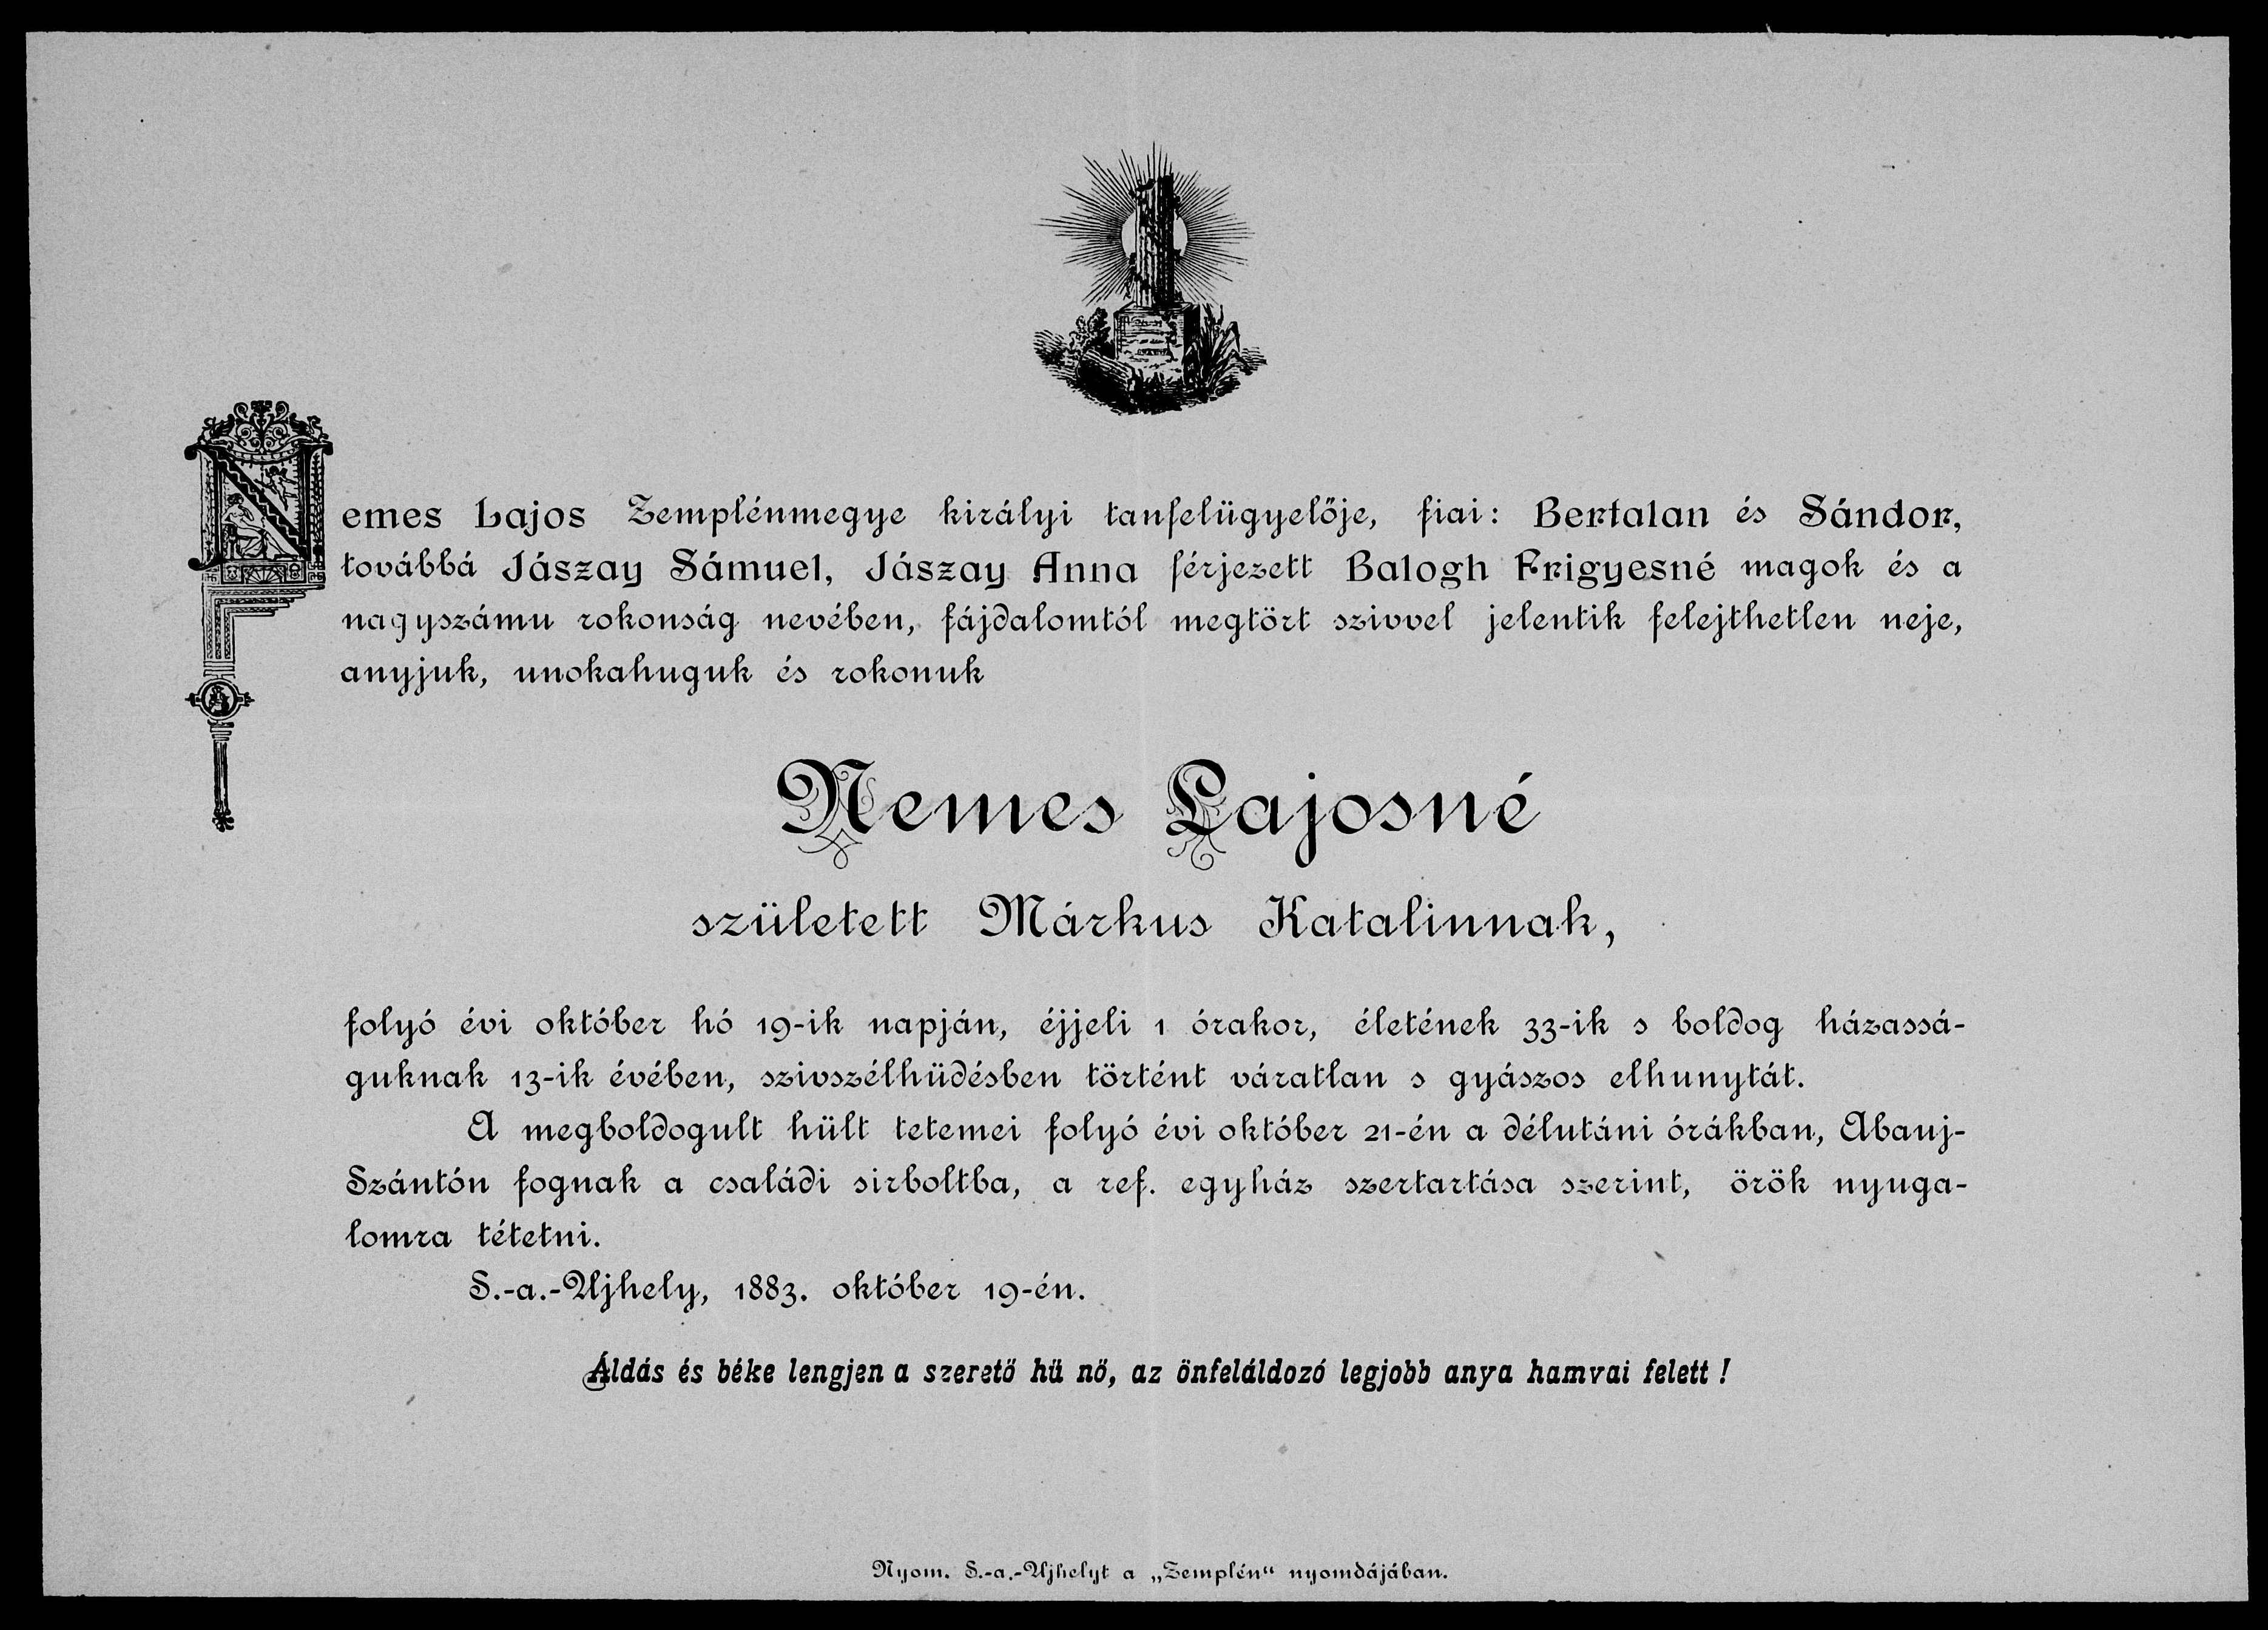 Nemes Lajos Zemplénmegye királyi tanfelügyelője, fiai: Bertalan és Sándor,
továbbá Jászay Sámuel, Jászay Anna férjezett Balogh Frigyesné magok és a
nagyszámu rokonság nevében, fájdalomtól megtört szivvel jelentik felejthetlen neje,
anyjuk, unokahuguk és rokonuk
Nemes Lajosné
született Márkus Katalinnak,
folyó évi október hó 19-ik napján, éjjeli 1 órakor, életének 33-ik s boldog házassá-
guknak 13-ik évében, szivszélhüdésben történt váratlan s gyászos elhunytát.
A megboldogult hült tetemei folyó évi október 21-én a délutáni órákban, Abauj-
Szántón fognak a családi sirboltba, a ref. egyház szertartása szerint, örök nyuga-
lomra tétetni.
S.-a.-Ujhely, 1883. október 19-én.
Áldás és béke lengjen a szerető hü nő, az önfeláldozó legjobb anya hamvai felett !
Nyom. S.-a.-Ujhelyt a „Zemplén“ nyomdájában.